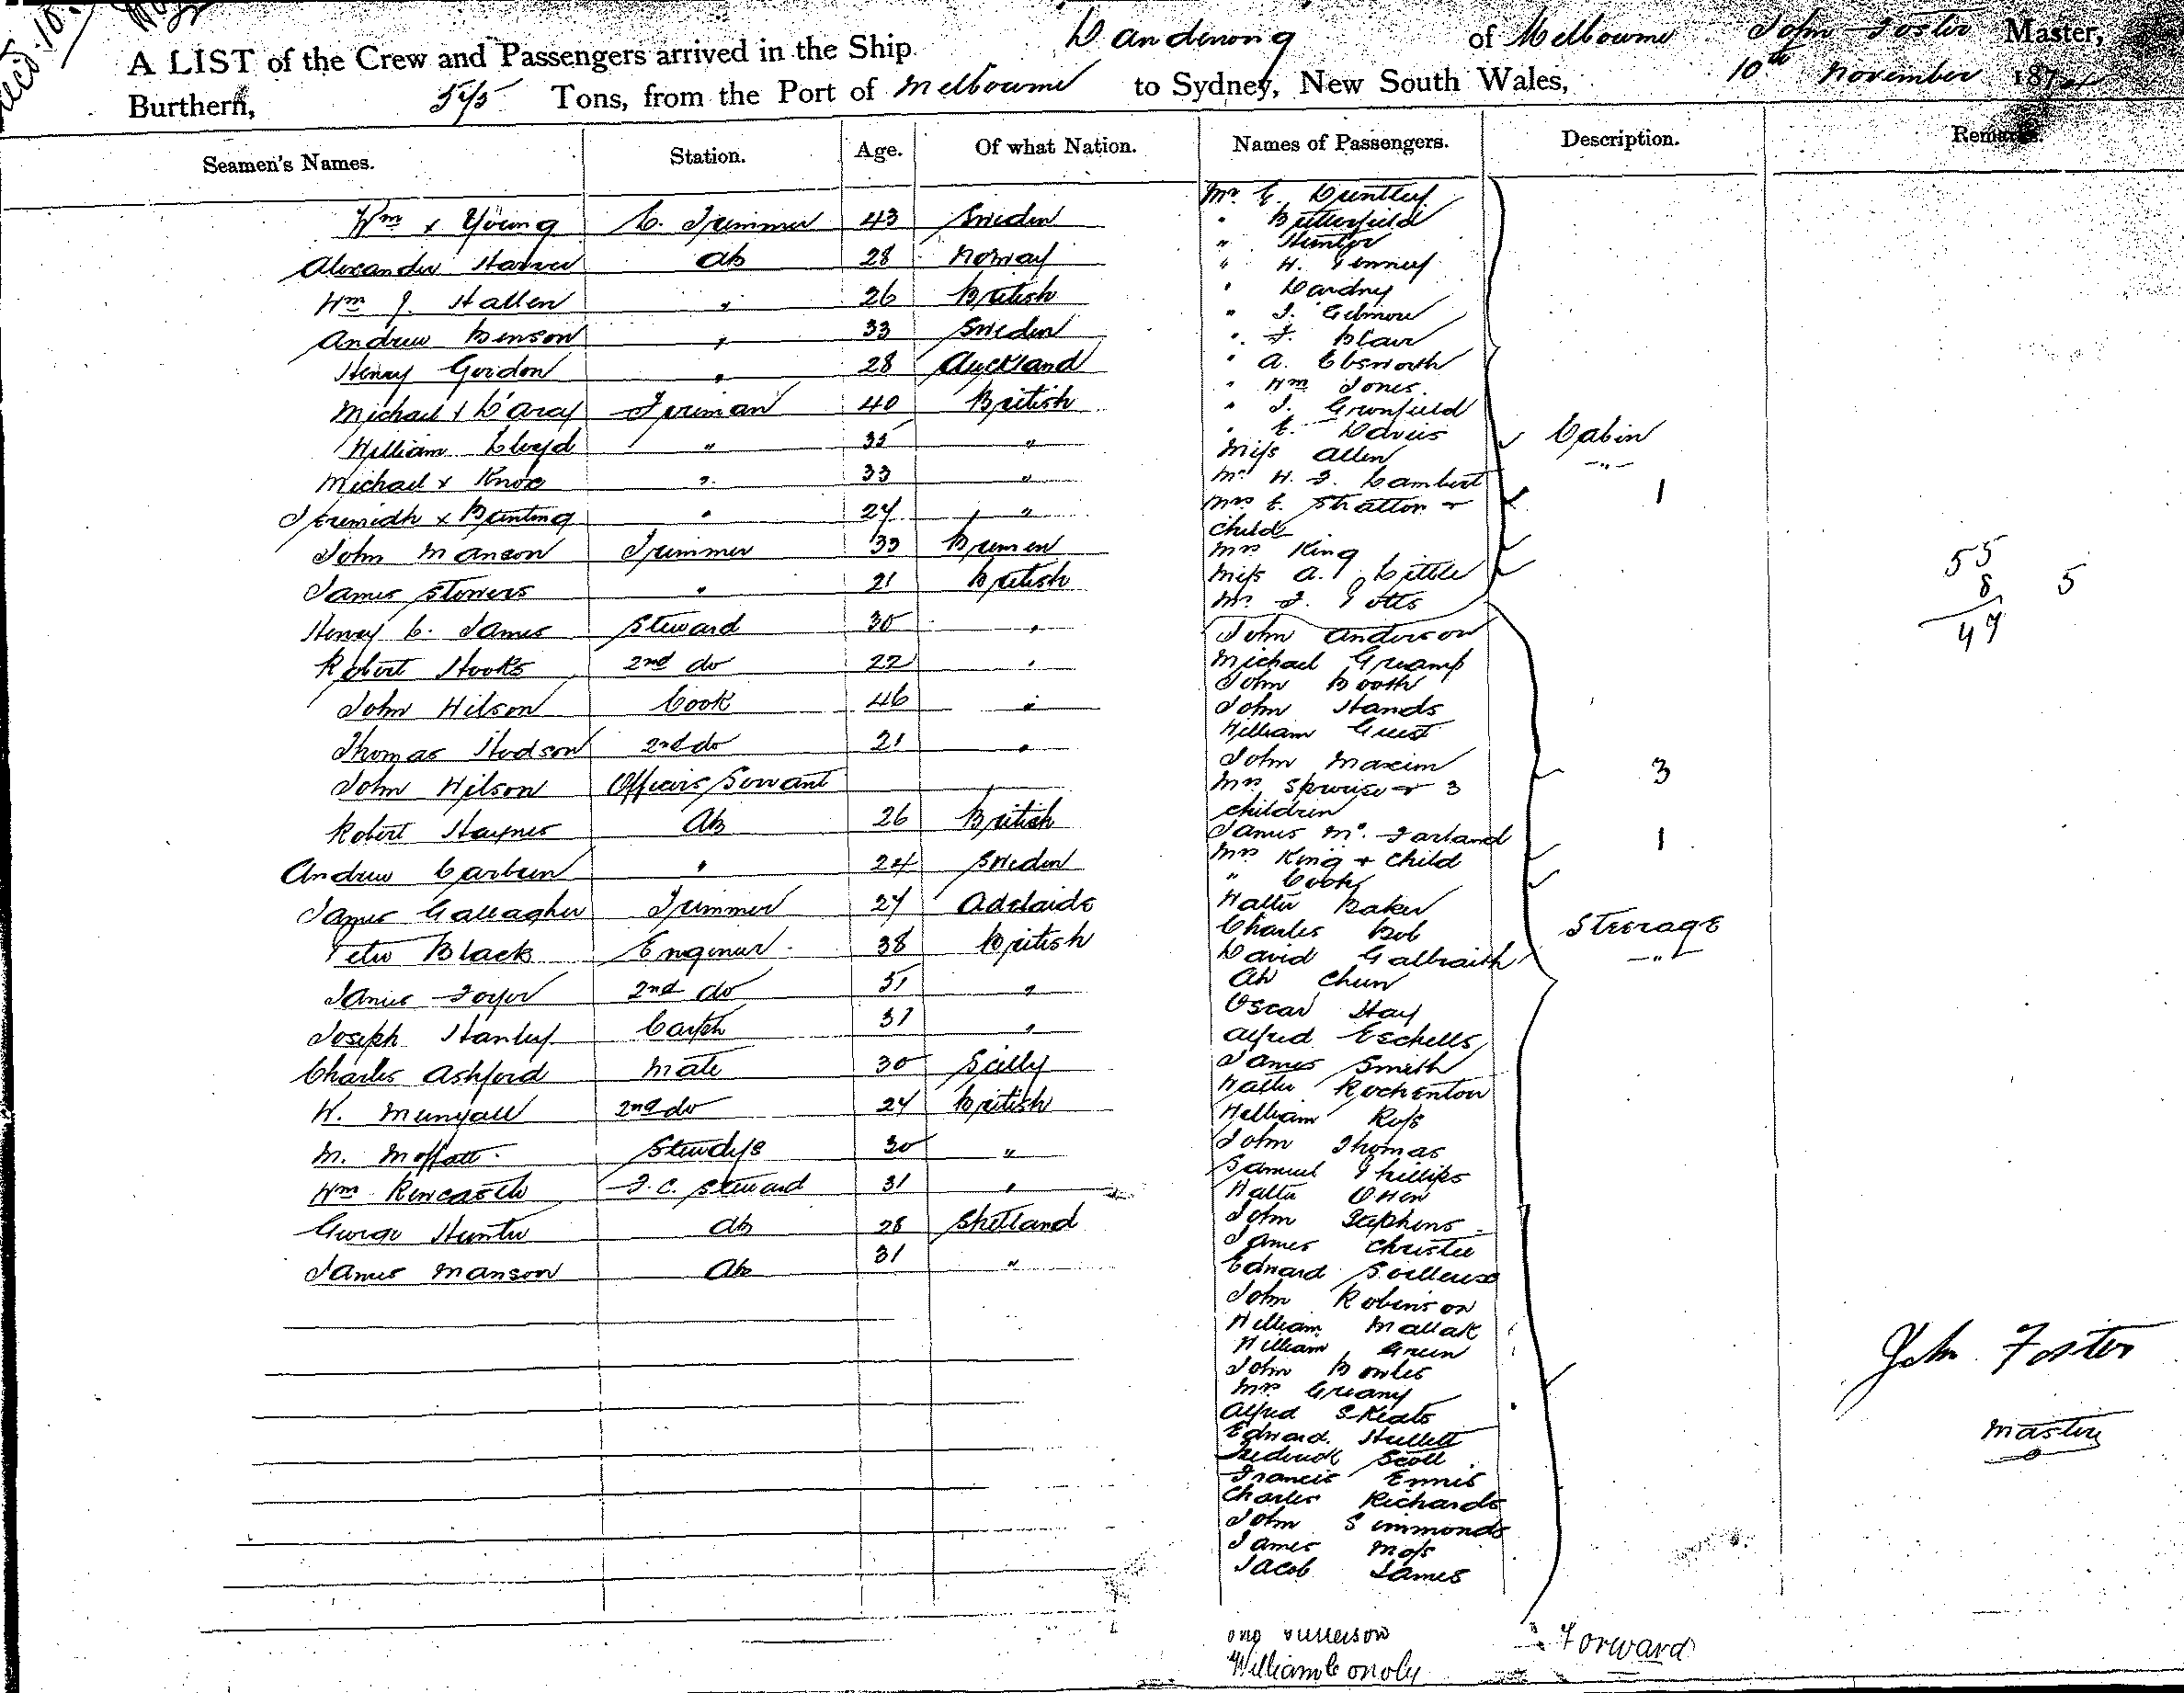 A LIST of the Crew and Passengers arrived in the Ship Dandenong of Melbourne John Foster Master,
Burthern, Tons, from the Port of Melbourne to Sydney, New South Wales, 10th November 187
Seamen's Names. Station. Age. Of what Nation. Names of Passengers. Description. Remarks.
Wm x Young C. Trimmer 43 Sweden
Alexander AB 28 Norway
Wm J. Hallen " 26 British
Andrew Benson " 33 Sweden
Henry Gordon " 28 Auckland
Michael x D'Arcy Fireman 40 British
William Lloyd " 35 "
Michael x Knox " 33 "
Jeremiah x Bunting " 27 "
John Manson Trimmer 33 Bremen
James Stowers " 21 British
Henry C. James Steward 30 "
Robert Hooks 2nd do 22 "
John Wilson Cook 46 "
Thomas Hodson 2nd do 21 "
John Wilson Officers Servant
Robert Haynes AB 26 British
Andrew " 24 Sweden
James Gallagher Trimmer 27 Adelaide
Peter Black Engineer 38 British
James 2nd do 51 "
Joseph Stanley 31 "
Charles Ashford Mate 30 Scilly
W. 2nd do 27 British
M. Moffatt 30 "
Wm F.C. Steward 31 "
George Hunter AB 28 Shetland
James Manson AB 31 "
Mr E. Huntley
" Butterfield
" Hunter
" H.
"
" J. Gilmore
" F. Blair
" A. Ebsworth
" Wm Jones
" J. Grunfield
" E. Davies
Miss Allen
Mr H. J. Lambert
Mrs E. Stratton +
child
Mrs King
Miss A. Little
Mr J. Potts
Cabin
"
1
John Anderson
Michael
John Booth
John Hands
William Guest
John Maxim
Mrs + 3
children
James Mc Farland
Mrs King + Child
" Cook
Walter Baker
Charles Bob
David Galbraith
Ah Chun
Oscar Hay
Alfred Eschells
James Smith
Walter Rochenton
William Ross
John Thomas
Samuel Phillips
Walter Owen
John Stephens
James Christie
Edward
John Robinson
William Mallak
William Green
John Bowles
Mrs Greany
Alfred Skeats
Edward Hullett
Frederick Scott
Francis Ennis
Charles Richards
John Simmonds
James Moss
Jacob James
William Conoly
3
1
Steerage
"
Forward
55
8 5
47
John Foster
Master